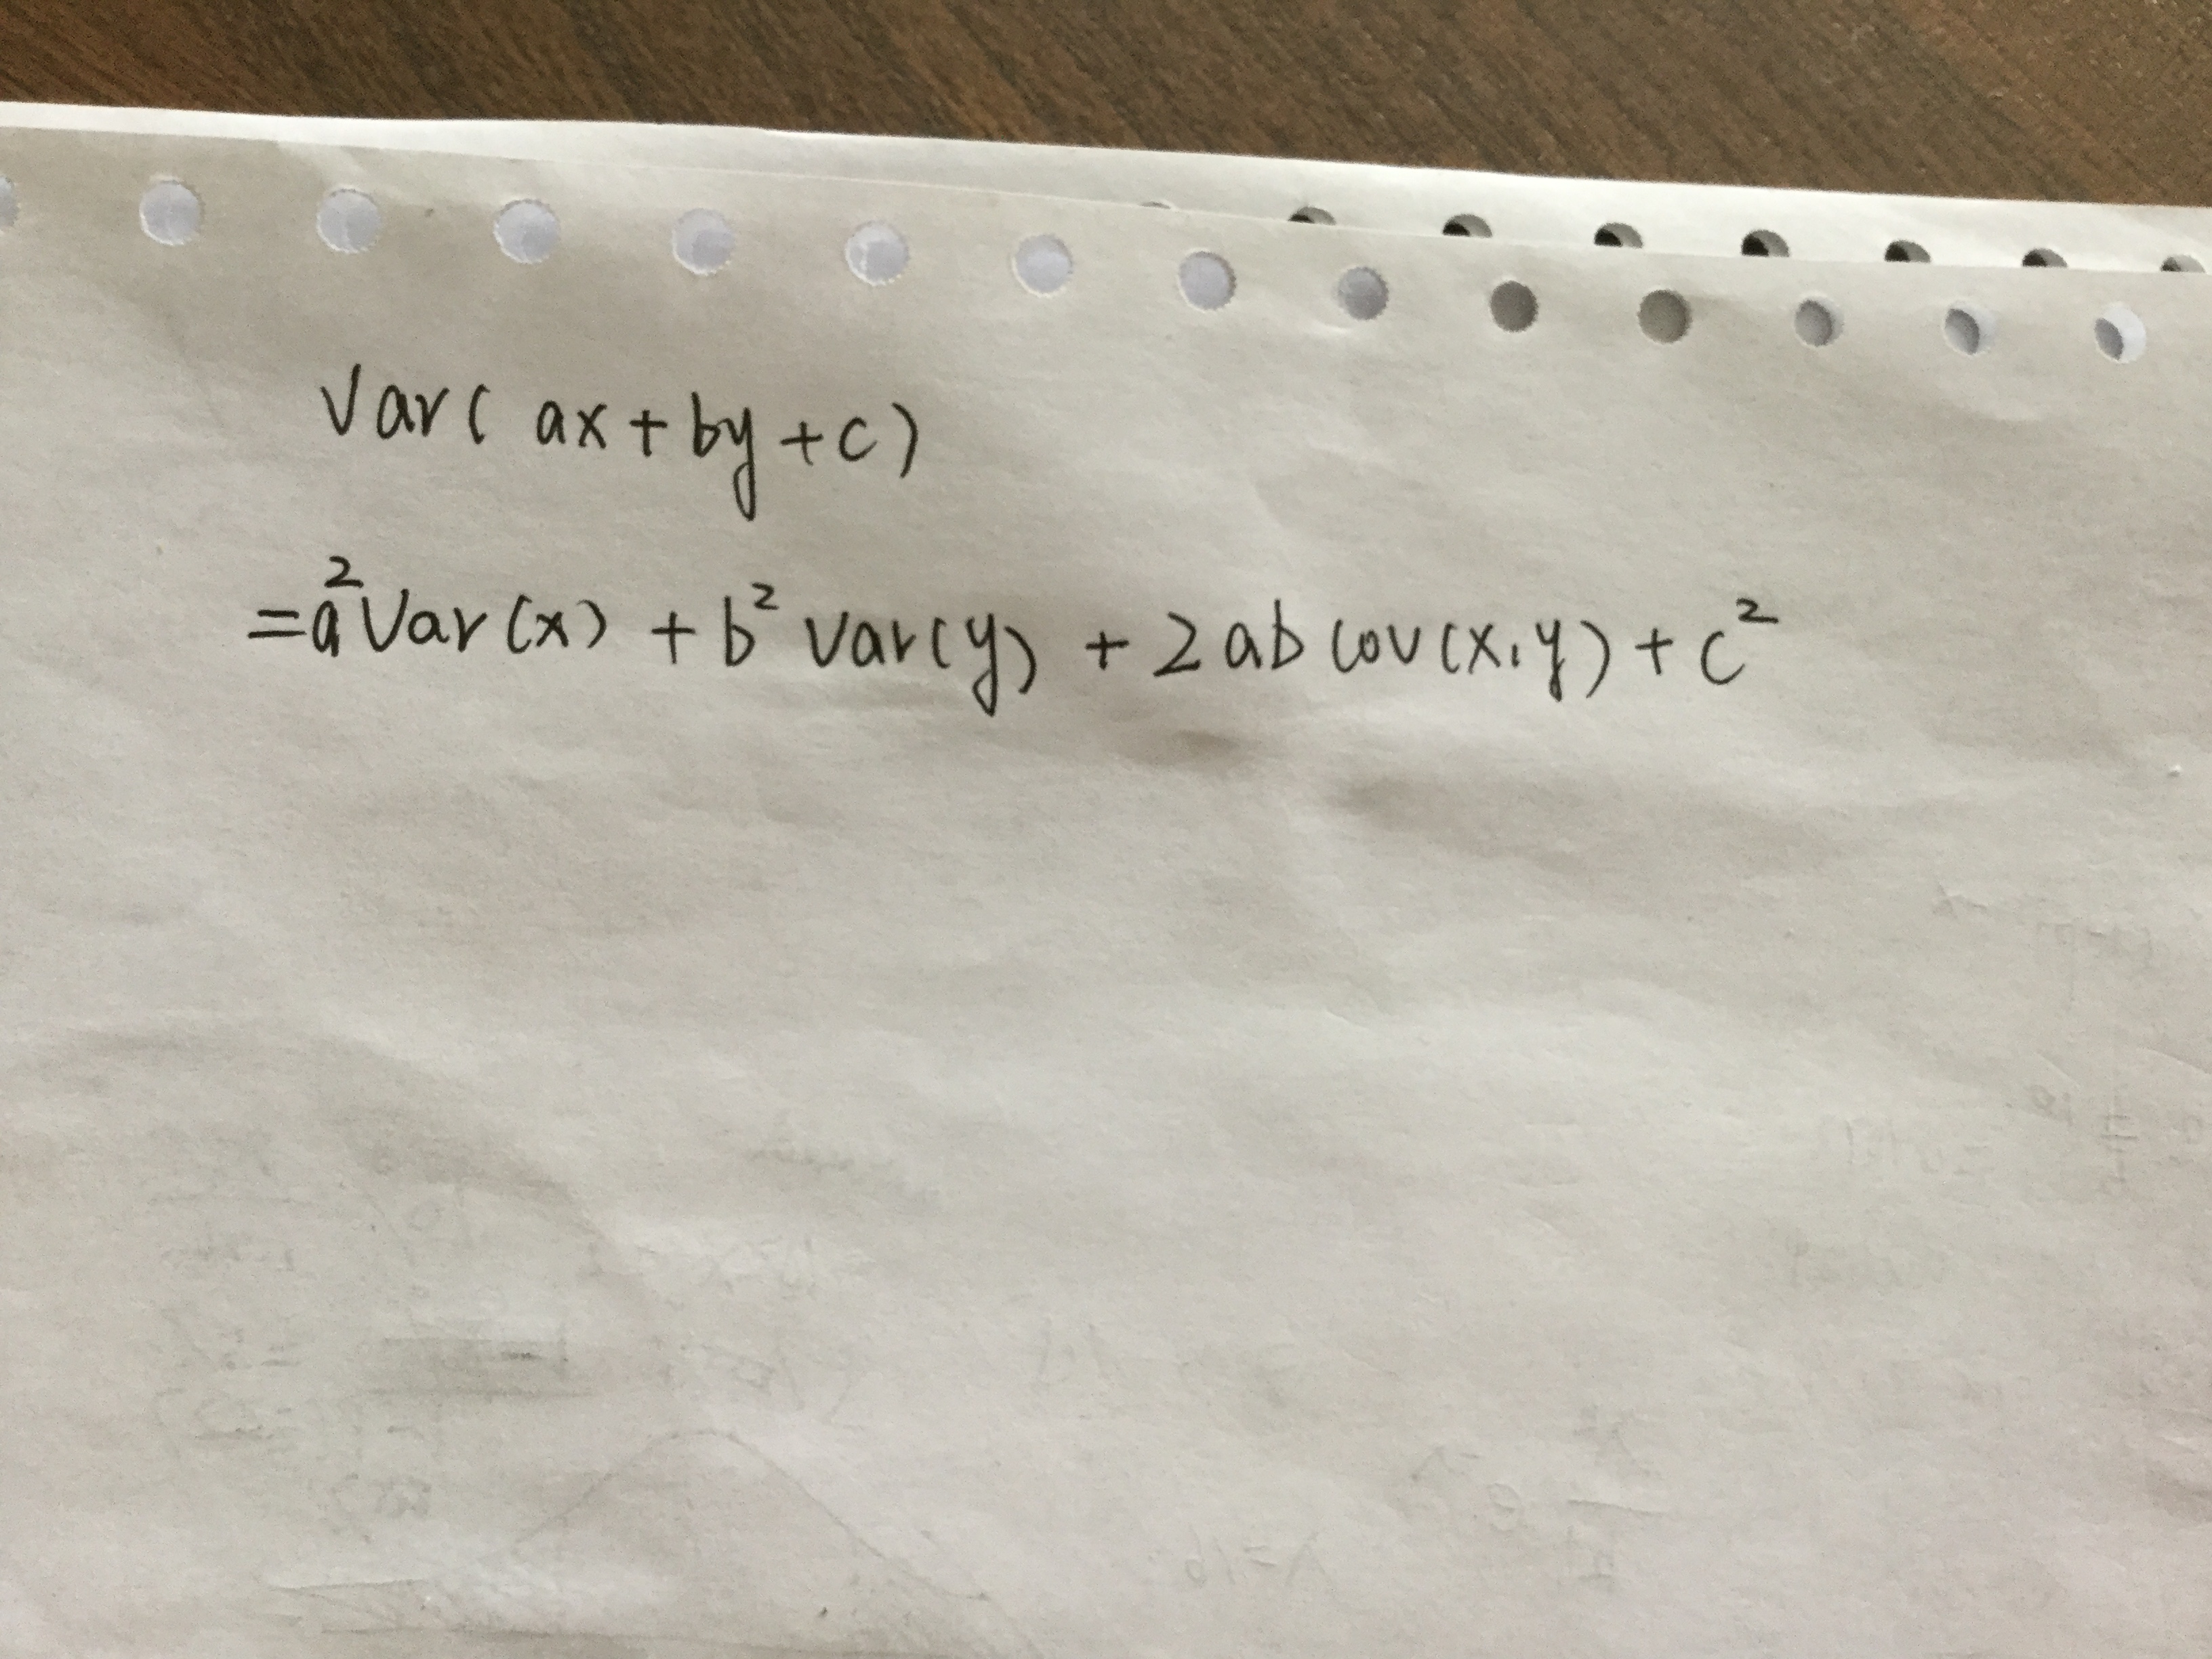 Var( ax+by+c)
=a²Var(x) + b² Var(y) + 2ab Cov(x,y) + c²